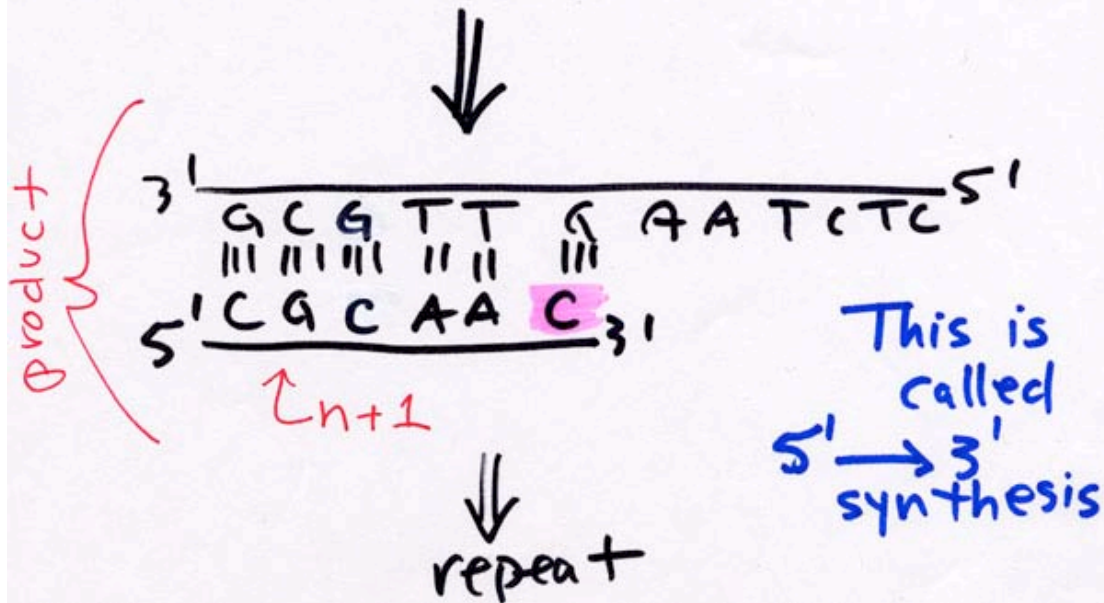 product
3' 5'
G C G T T G A A T C T C
5' C G C A A C 3'
n+1
This is
called
5' → 3'
synthesis
repeat